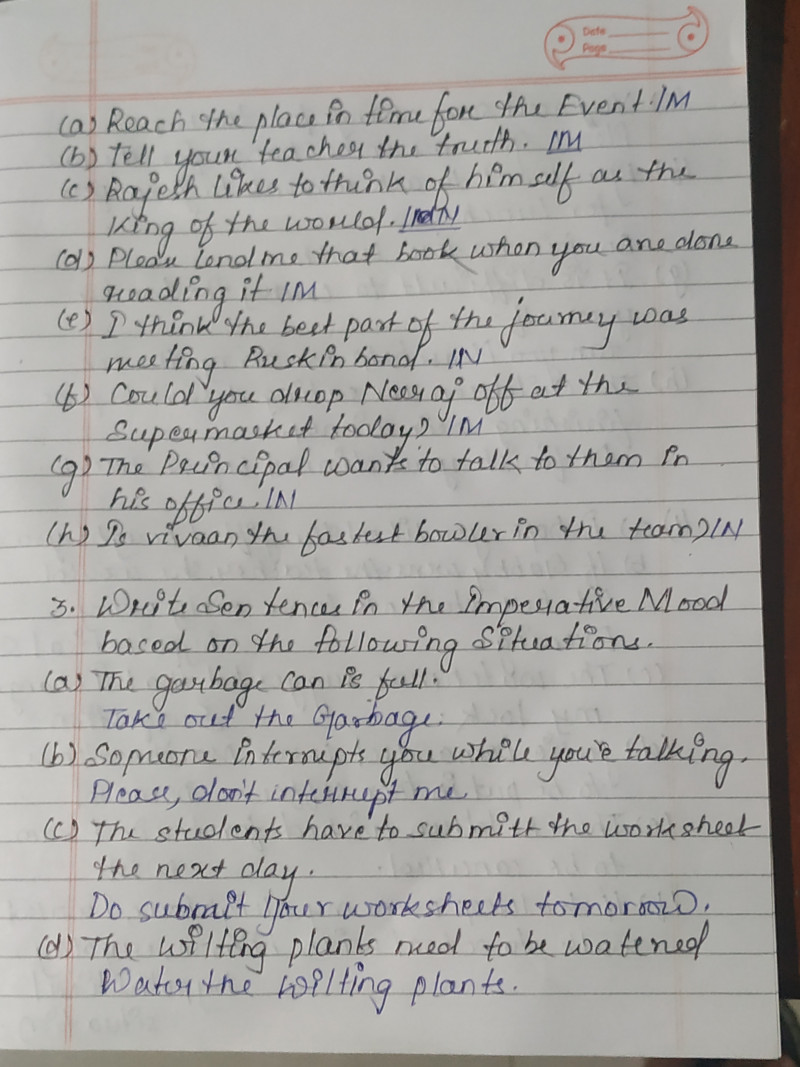 Date
Page
(a) Reach the place in time for the Event. IM
(b) Tell your teacher the truth. IM
(c) Rajesh likes to think of himself as the
King of the world. IN
(d) Please lend me that book when you are done
reading it IM
(e) I think the best part of the journey was
meeting Ruskin bond. IN
(f) Could you drop Neeraj off at the
Supermarket today? IM
(g) The Principal wants to talk to them in
his office. IN
(h) Is vivaan the fastest bowler in the team? IN
3. Write Sentences in the Imperative Mood
based on the following Situations.
(a) The garbage can is full.
Take out the Garbage.
(b) Someone interrupts you while you're talking.
Please, don't interrupt me
(c) The students have to submitt the worksheet
the next day.
Do submit your worksheets tomorrow.
(d) The wilting plants need to be watered
Water the wilting plants.